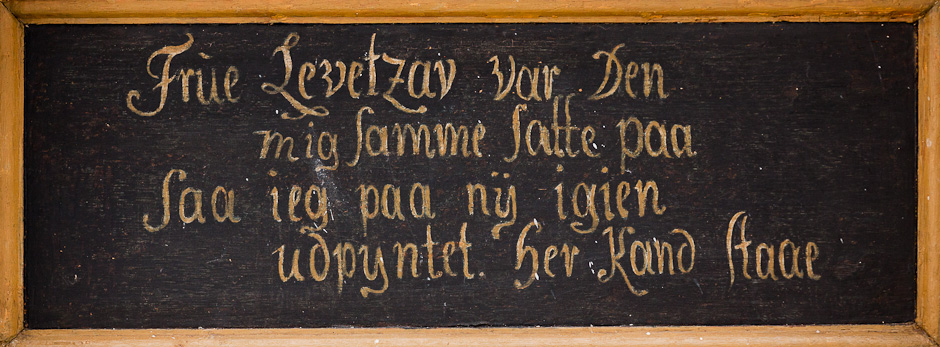 Frùe Levetzav var Den
mig ſamme ſatte paa
ſaa ieg paa nÿ igien
udpyntet. her Kand ſtaae